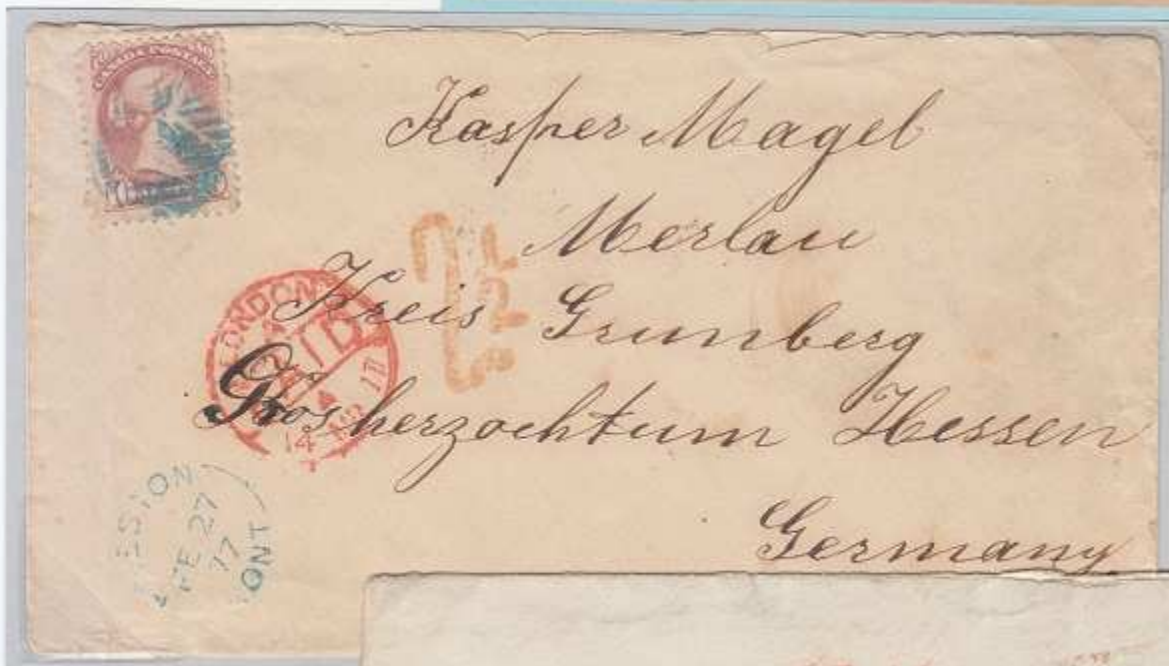 CANADA POSTAGE
Kasper Magel
Merlau
Kreis Grunberg
Grosherzochtum Hessen
Germany
2 1/2
LONDON
PAID
14 MR 77
FE 27
77
ONT